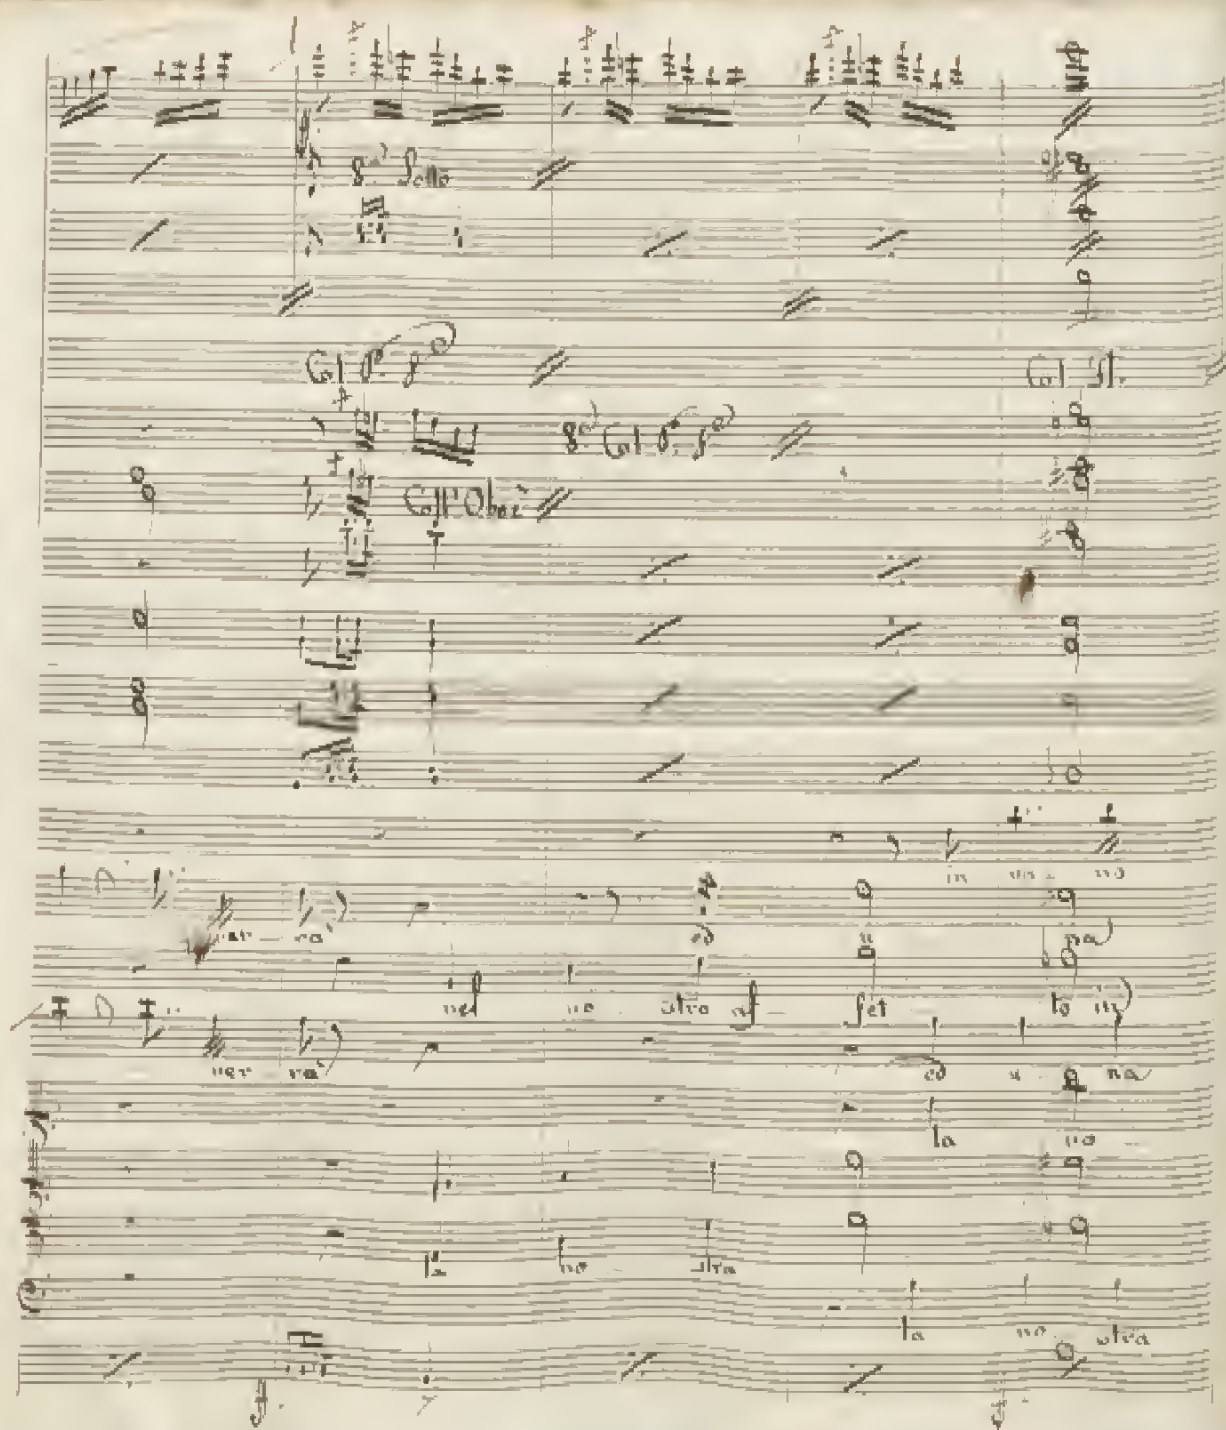 8a Sotto
Col Pmo Vo
Col Fl.
8a Col Pmo Vo
Coll' Oboè
in va - no
ver - rà ed u na
nel no stro af - fet to in
ver - rà ed u na
la no -
la no stra
la no stra
f.
f.